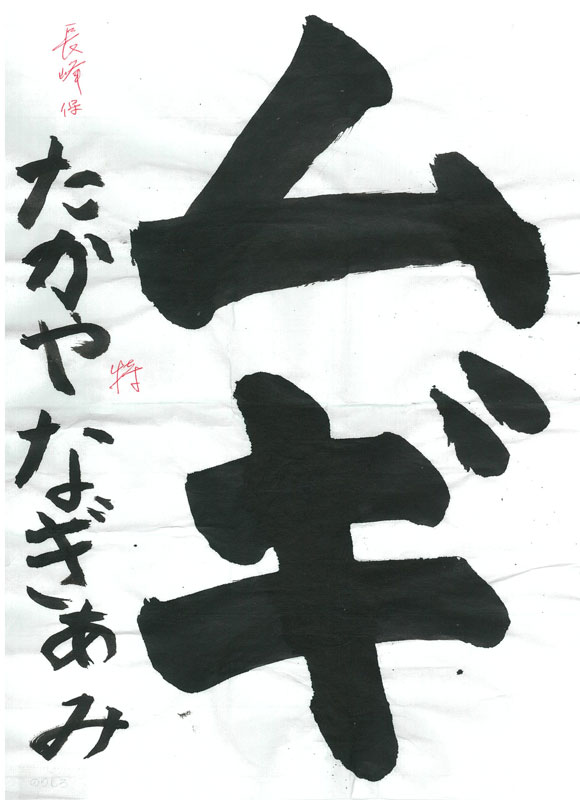 ムギ
たかやなぎあみ
長峰保
特